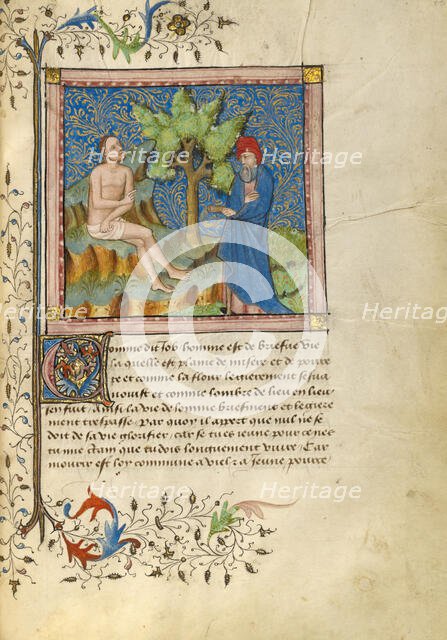 Comme dit Job homme est de briefue vie
la quelle est plaine de misere et de pourre
te et comme la flour legierement se sua
nouist et comme lombre de lieu en lieu
sen fuit Ainsi la vie de lomme briefment et legiere
ment trespasse Par quoy il apert que nul ne se
doit de sa vie glorifier car se tu es ieune pour ce nes
tu mie certain que tu dois longuement viure Car
mourir est loy commune a vielz a Jeune poure
heritage Images